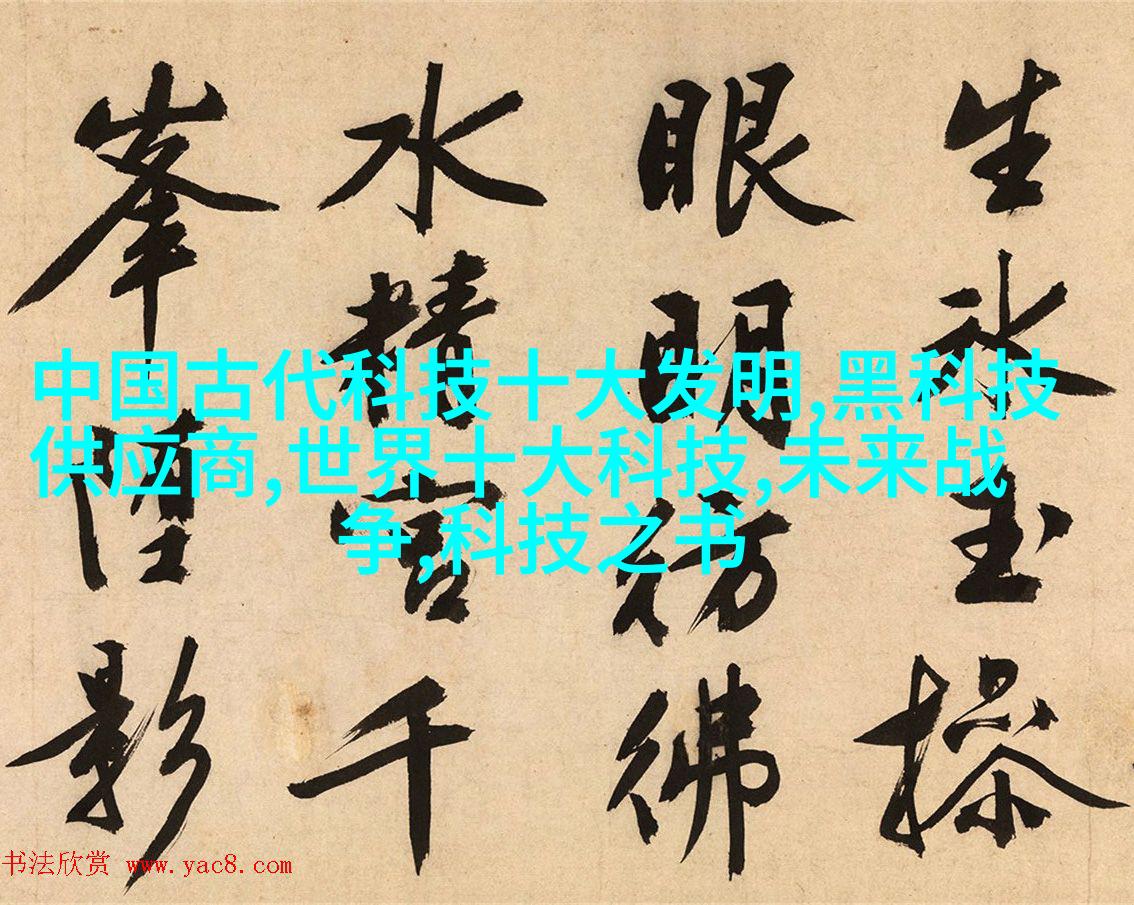 生冰玉操
眼明彷彿
水精宮千
峯影
中国古代科技十大发明,黑科技
供应商,世界十大科技,未来战
争,科技之书
书法欣赏 www.yac8.com